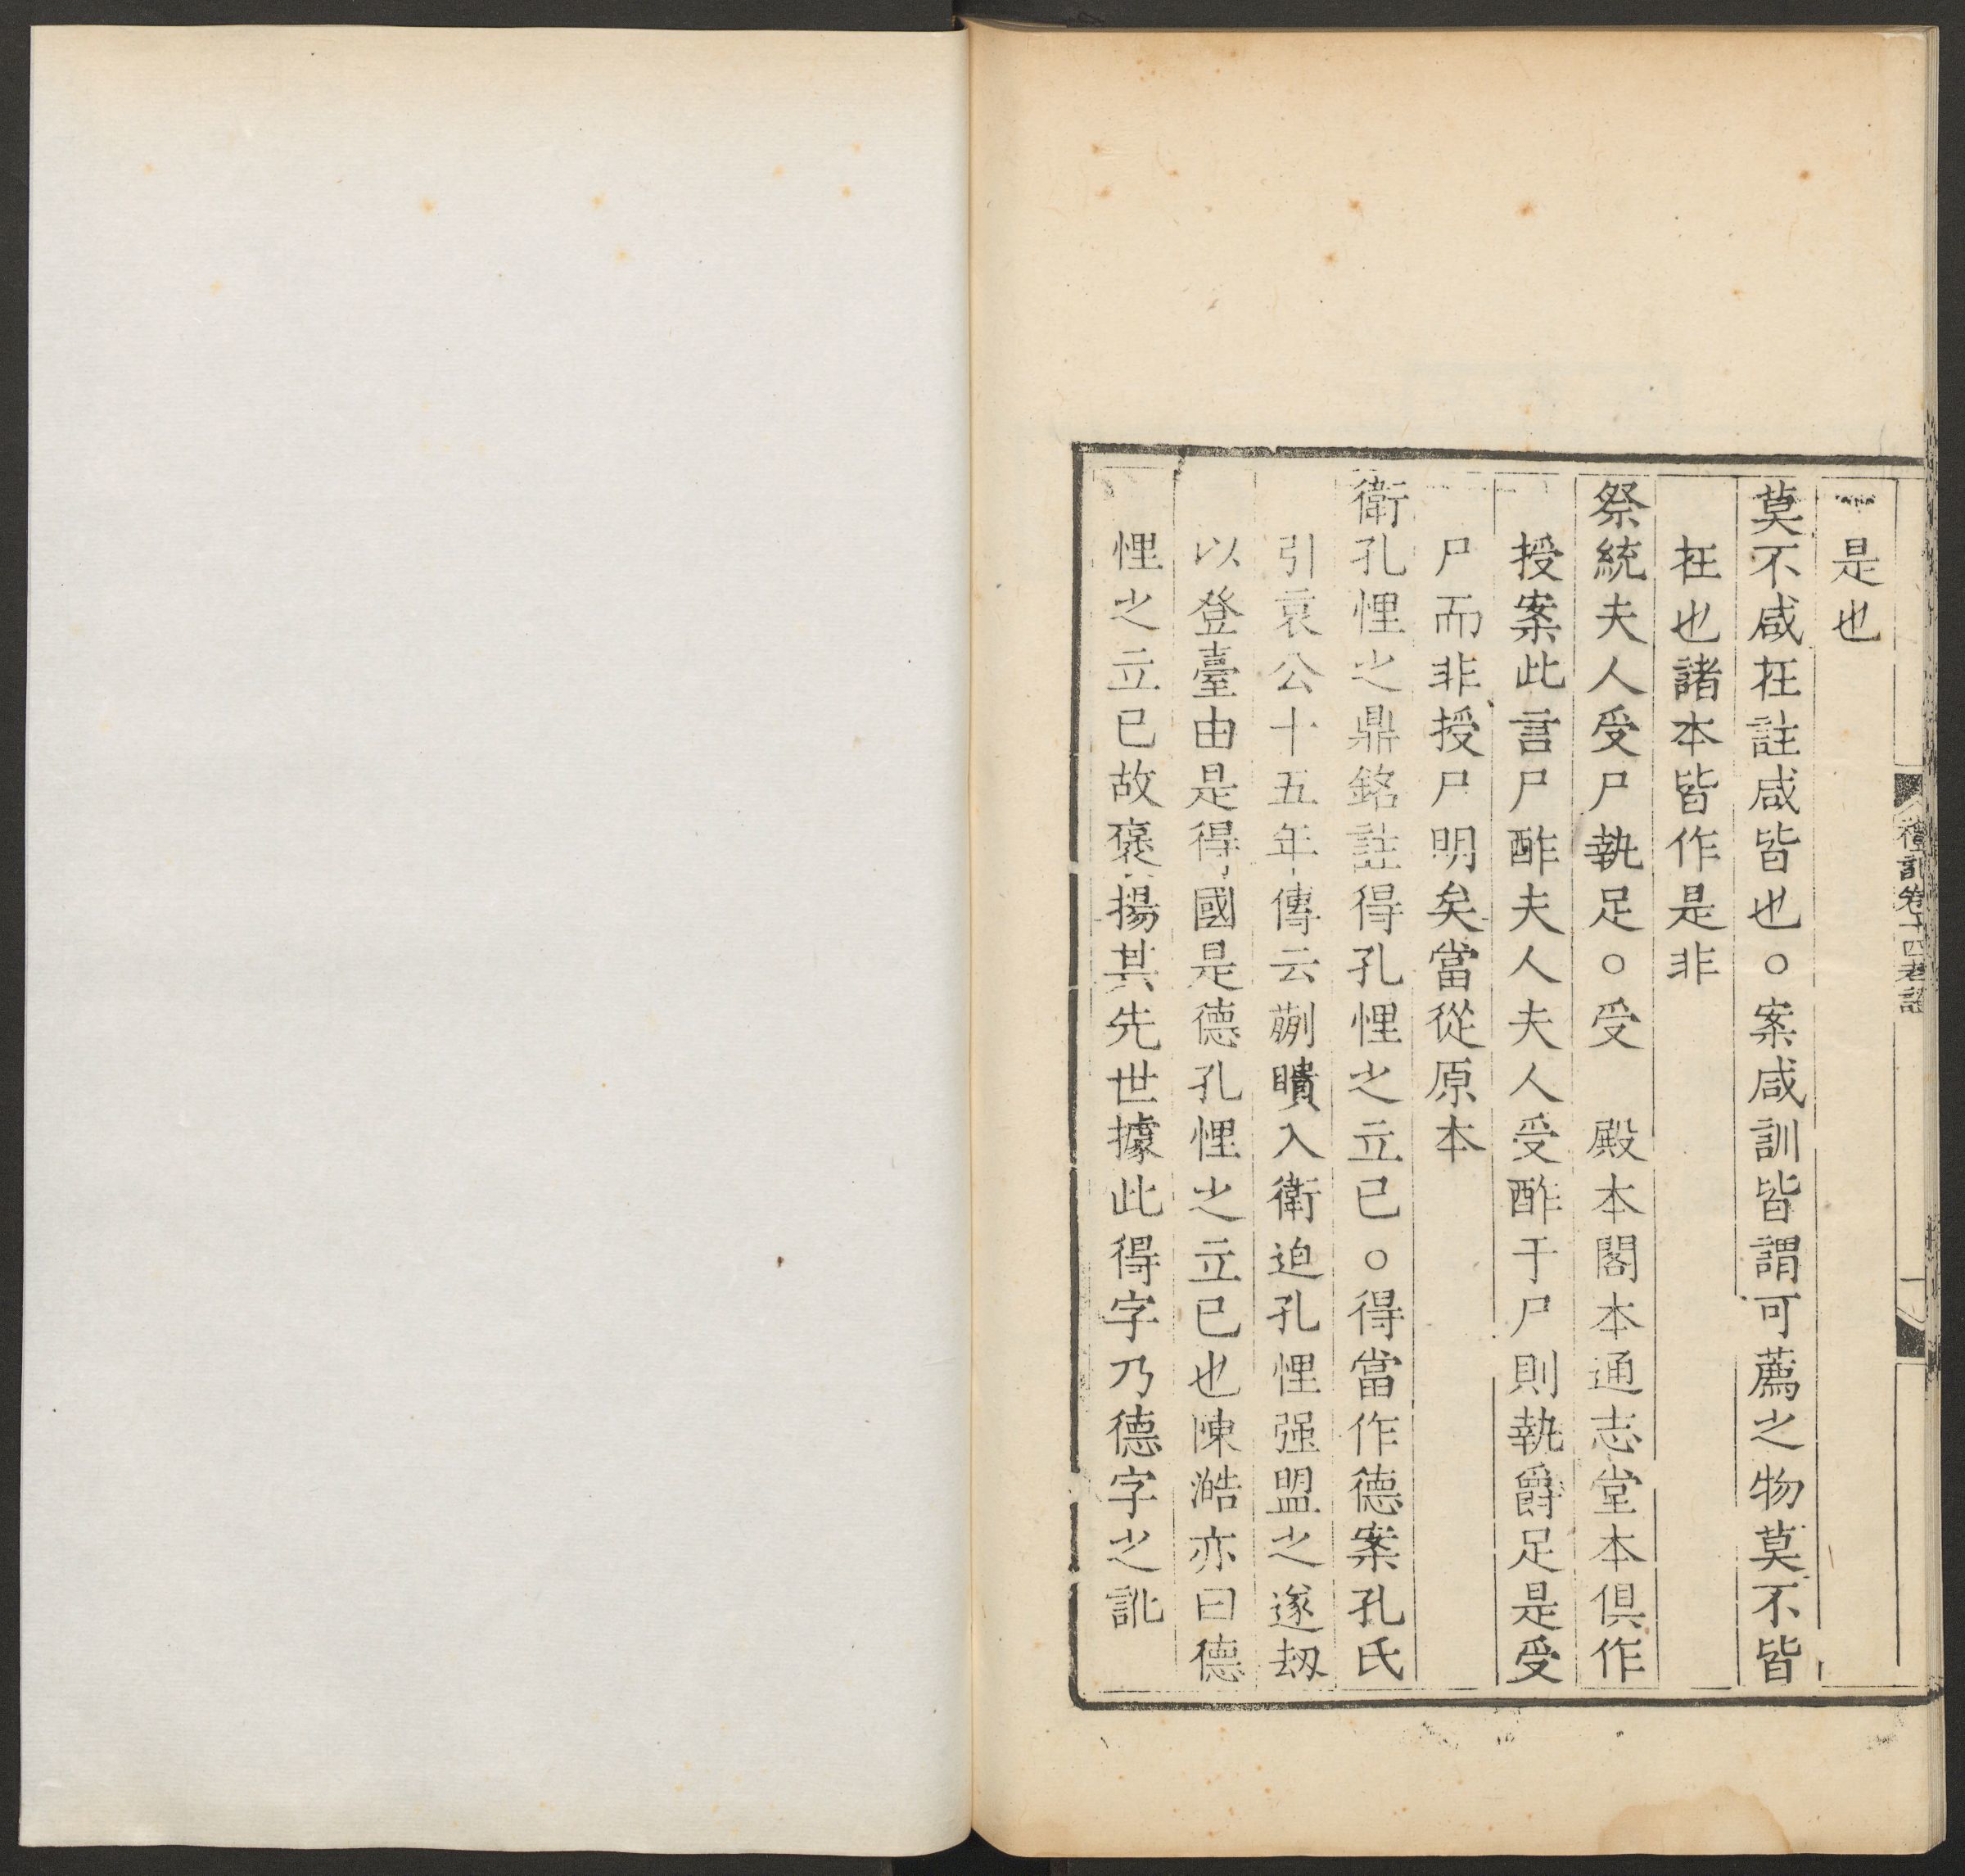 是也
莫不咸在註咸皆也○案咸訓皆謂可薦之物莫不皆
在也諸本皆作是非
祭統夫人受尸執足○受　殿本閣本通志堂本俱作
授案此言尸酢夫人夫人受酢于尸則執爵足是受
尸而非授尸明矣當從原本
衛孔悝之鼎銘註得孔悝之立已○得當作德案孔氏
引哀公十五年傳云蒯聵入衛迫孔悝强盟之遂刼
以登臺由是得國是德孔悝之立已也陳澔亦曰德
悝之立已故褒揚其先世據此得字乃德字之訛
禮記卷十四考證